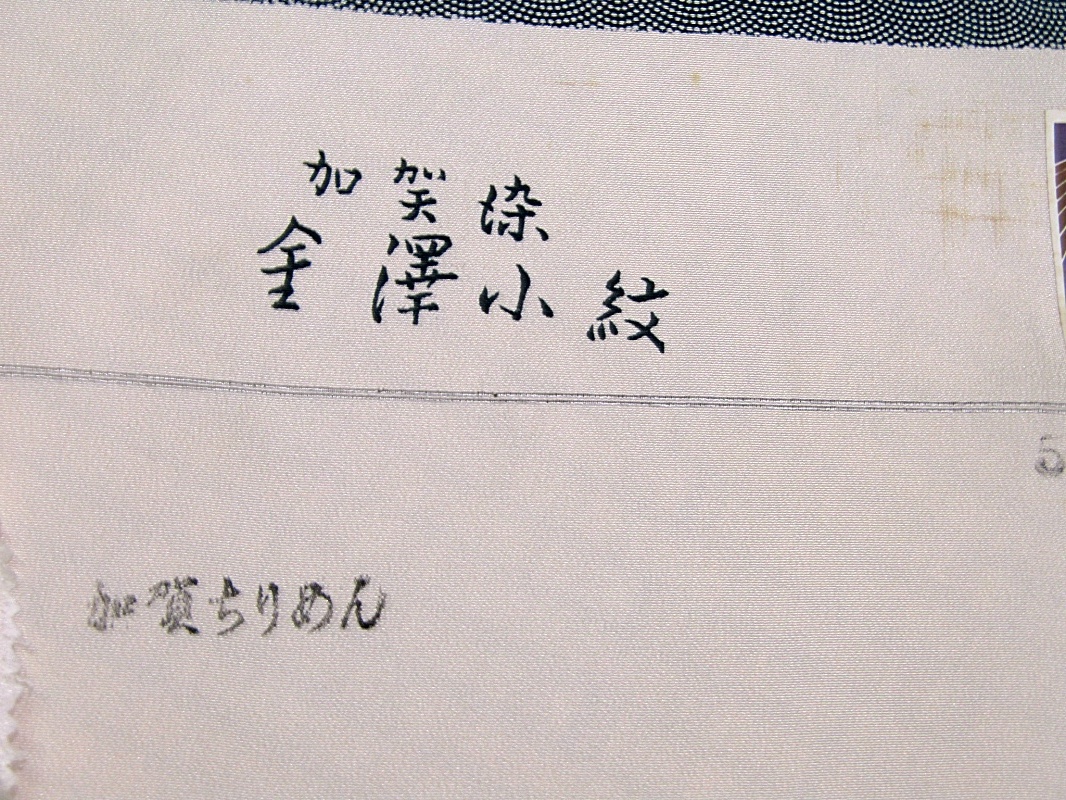 加賀染
金澤小紋
5
加賀ちりめん